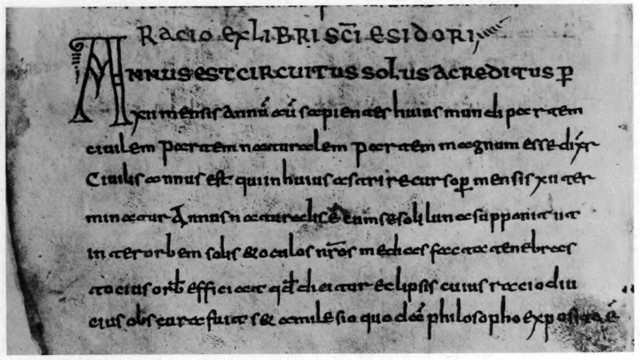 RACIO EX LIBRI SC̄I ESIDORI
ANNUS EST CIRCUITUS SOLUS ACREDITUS P̄
xii mensis annū cū sapientes huius mundi partem
ciuilem partem naturalem partem magnum esse dixer
Ciuilis annus est qui in huius astri recurso ꝑ mensis xii ter
minatur Annus naturalis ē cum se soli luna supponit ut
inter orbem solis & oculos nr̄os medias facta tenebras
tocius orb̄ efficiat qd̄ dicitur eclipsis cuius racio diu
cius obscura fuit s& a milesio quodā philosopho exposita ē